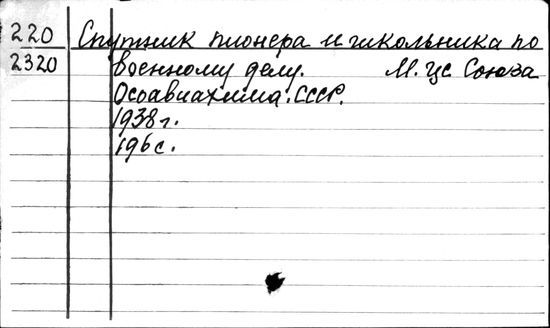 220 Спутник пионера и школьника по
2320 военному делу. М. ЦС Союза
Осоавиахима. СССР.
1938 г.
196 с.